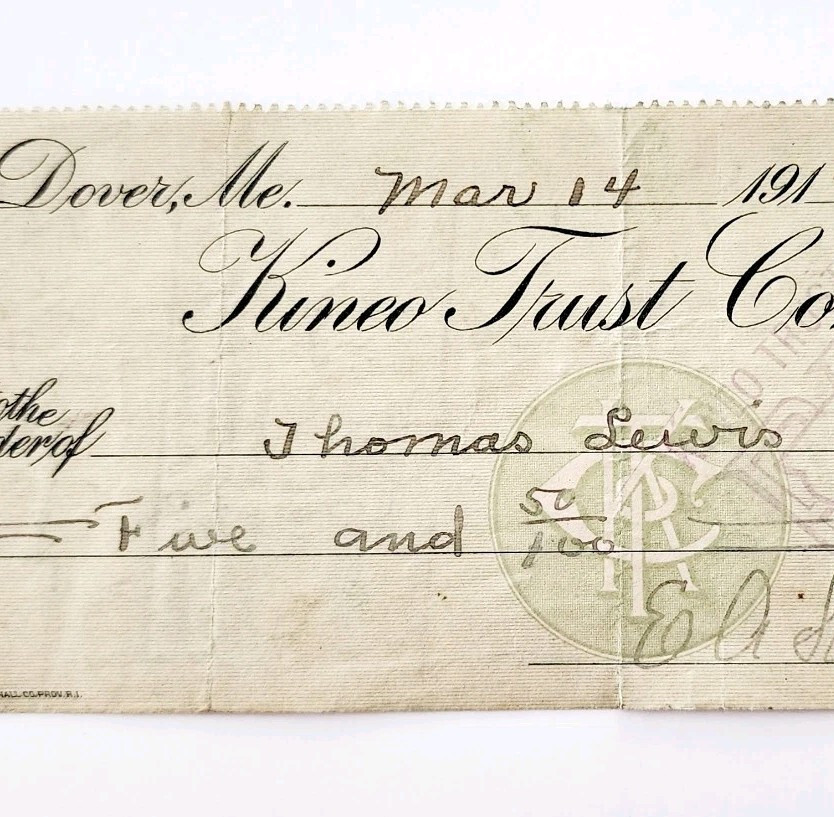 Dover, Me. Mar 14 191
Kineo Trust Co.
to the
der of Thomas Lewis
Five and 50/100
E A
HALL CO. PROV. R.I.